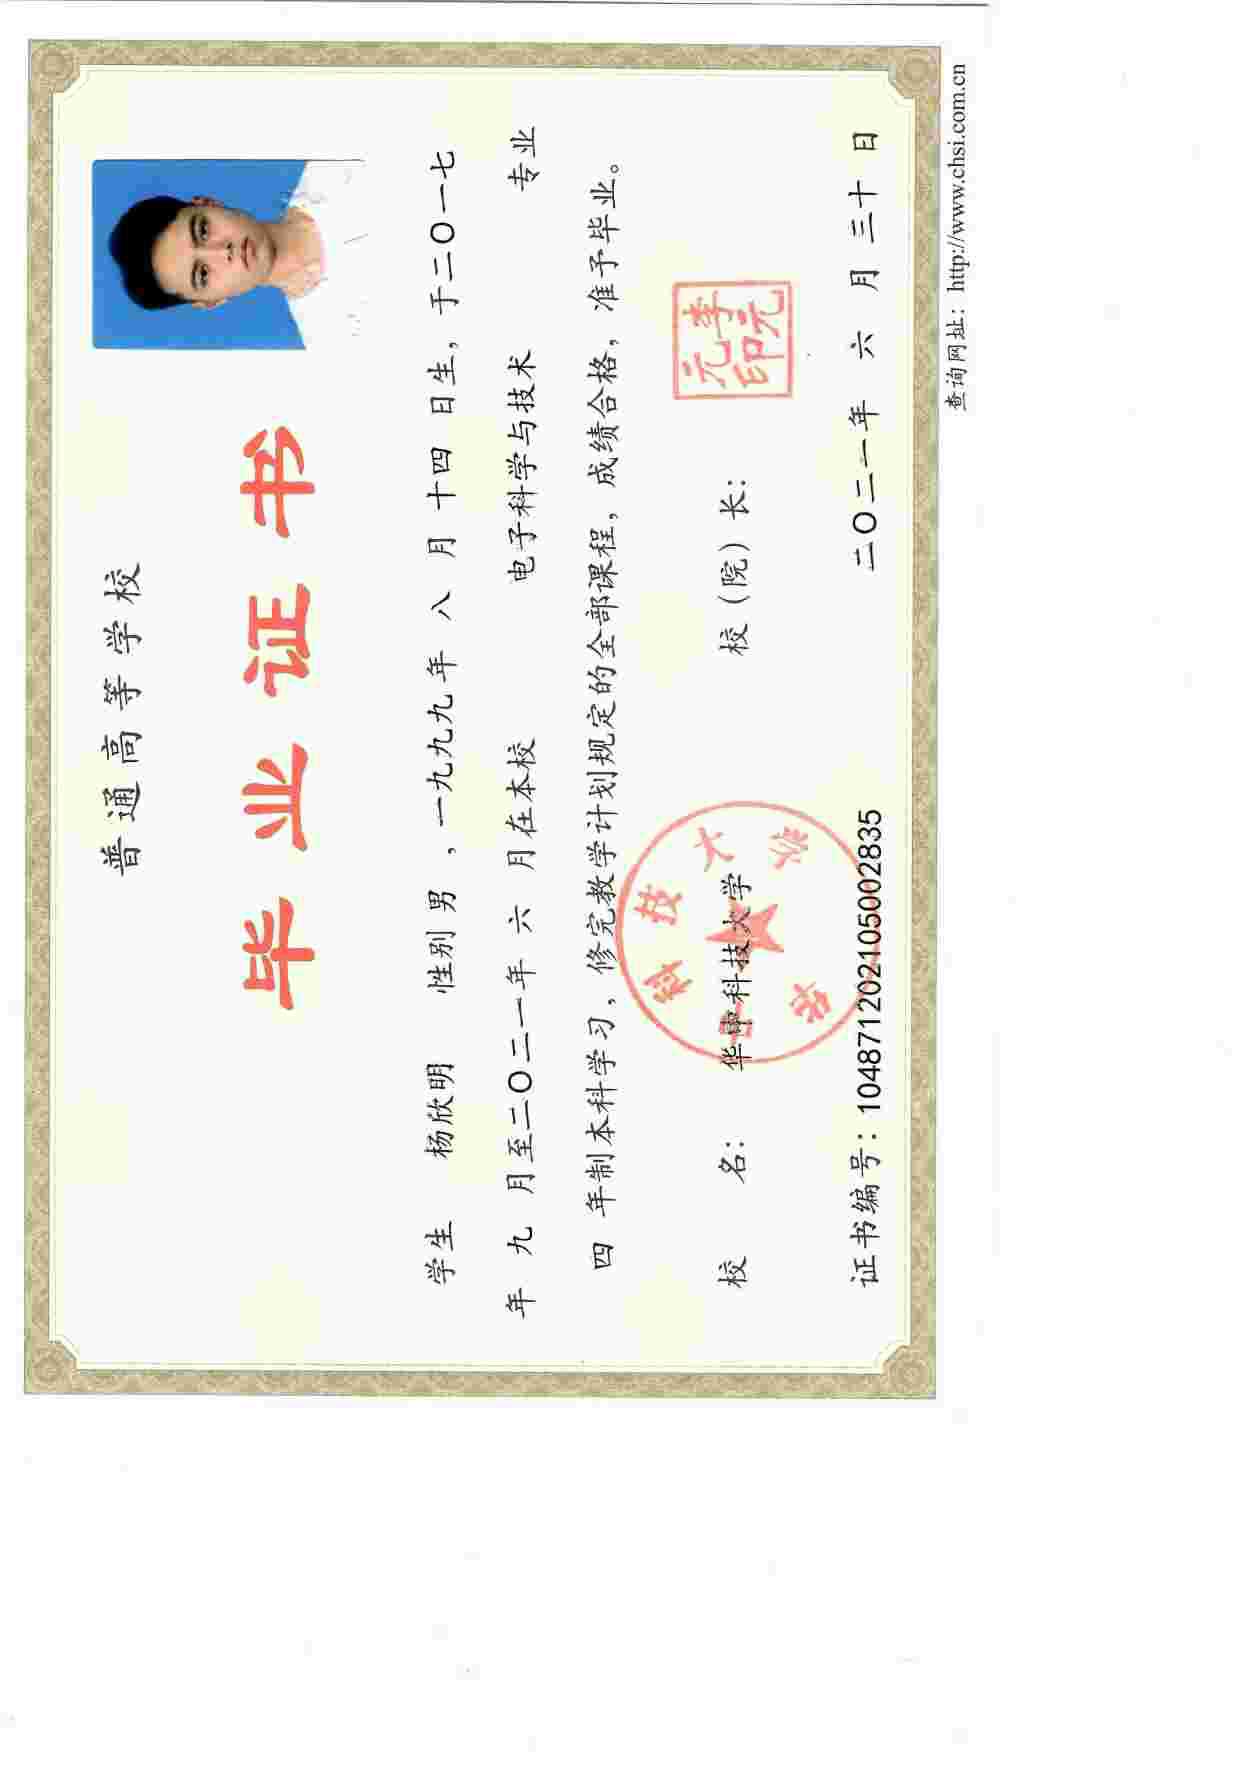 普通高等学校
毕业证书
学生 杨欣明 性别男，一九九九年 八 月 十四 日生，于二〇一七
年 九 月至二〇二一年 六 月在本校 电子科学与技术 专业
四 年制本科学习，修完教学计划规定的全部课程，成绩合格，准予毕业。
校 名： 华中科技大学 校（院）长：
华中科技大学
李元元印
证书编号：104871202105002835 二〇二一年 六 月 三十 日
查询网址：http://www.chsi.com.cn